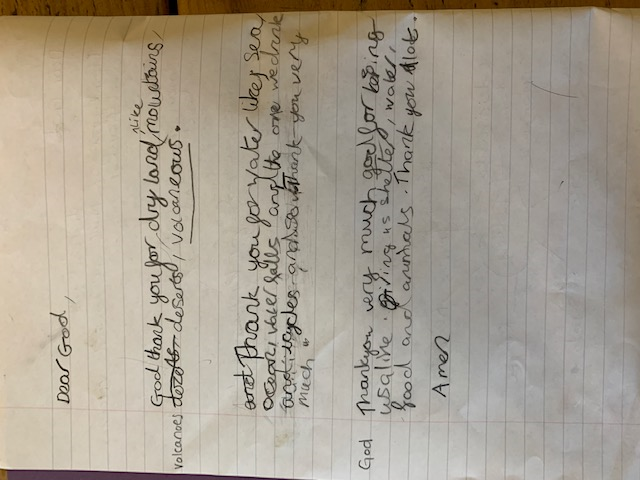 Dear God,
God thank you for dry land like mountains,
volcanoes deserts, volcaneous.
Thank you for water likes sea,
ocean, water falls and the one we drink
and icycles and so Thank you very
much.
God Thankyou very much god for keeping
us alive. Giving us shelter, water,
food and animals. Thank you Alot.
Amen